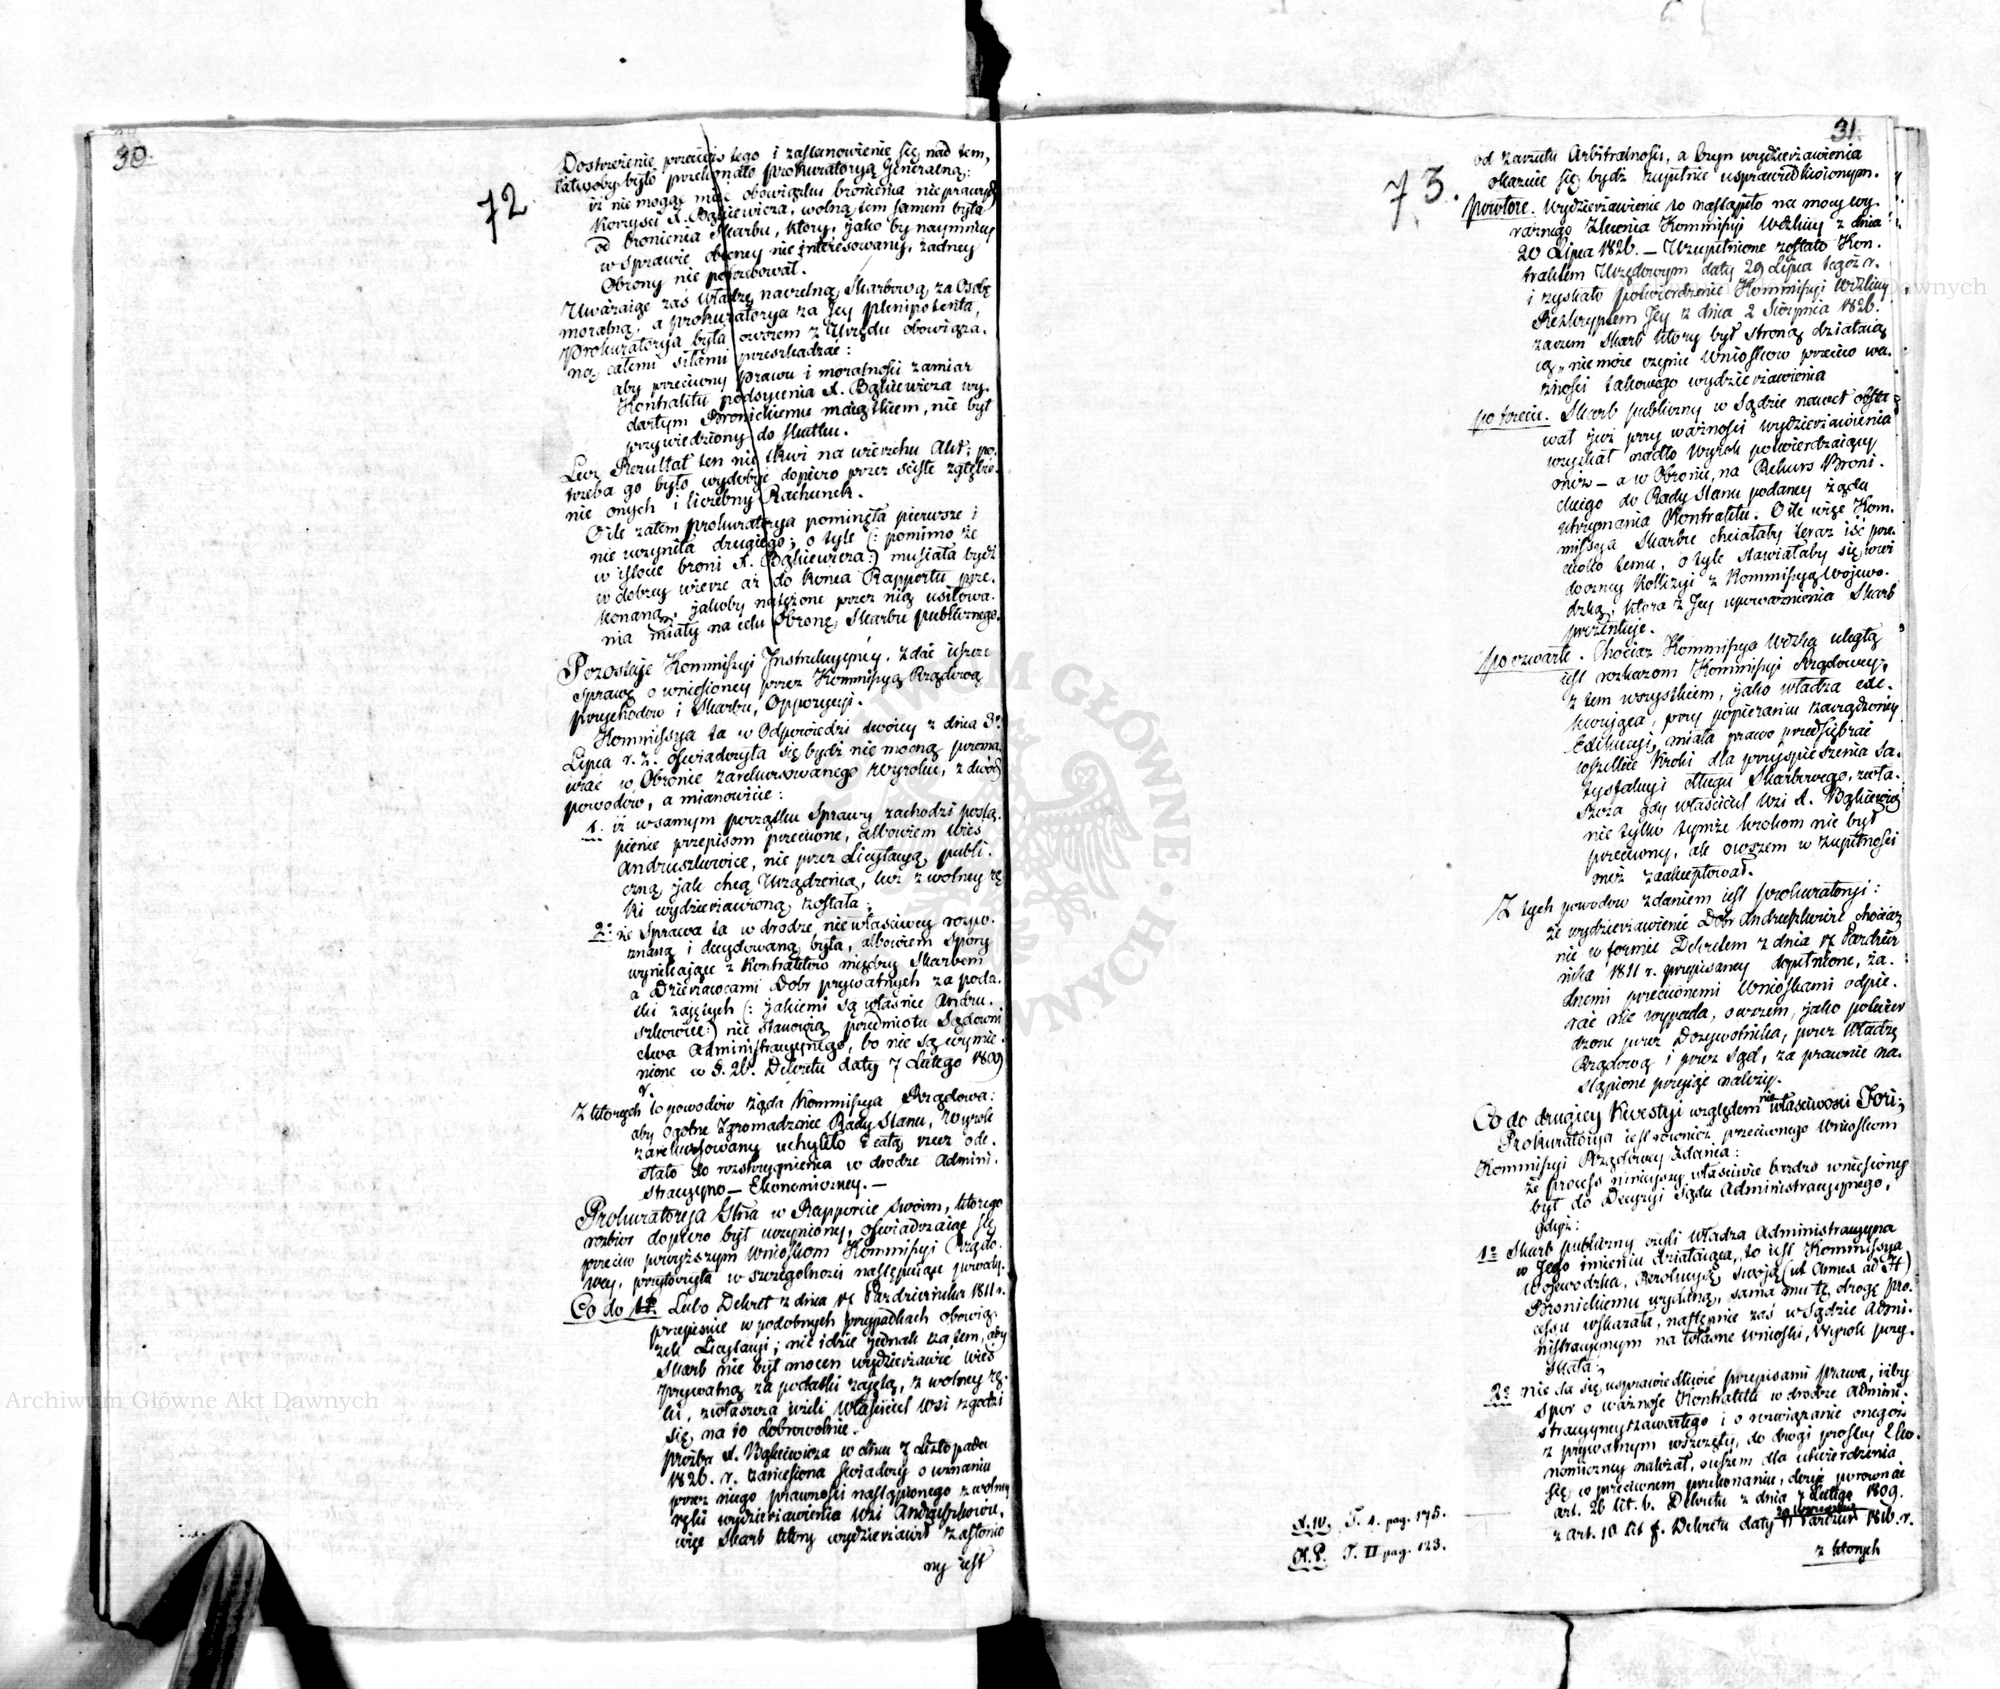 30.
72.
Dostrzeżenie przeciw tego i zastanowienie się nad tem,
łatwoby było przekonało Prokuratoryą Generalną:
iż nie mogąc mieć obowiązku bronienia nieprawych
Korzyści A. Bąkiewicza, wolną tem samem była
od bronienia Skarbu, który, jako by naymniey
w sprawie obecney nie interesowany, żadney
Obrony nie potrzebował.
Uważaiąc zaś Władzę naczelną Skarbową za Osobę
moralną, a Prokuratorya za Jey Plenipotenta,
Prokuratorya była owszem z Urzędu obowiąza-
ną całemi siłami przeszkadzać:
aby przeciwny Prawu i moralności zamiar
Kontraktu podsycenia A. Bąkiewicza wy-
dartym Bronickiemu maiątkiem, nie był
przywiedziony do skutku.
Lecz Rezultat ten nie tkwi na wierzchu Akt; po-
trzeba go było wydobyć dopiero przez ścisłe zgłębie-
nie onych i liczebny Rachunek.
O ile zatem Prokuratorya pominęła pierwsze i
nie uczyniła drugiego; o tyle (: pomimo że
w istocie broni A. Bąkiewicza:) musiała bydź
w dobrey wierze aż do końca Rapportu prze-
konaną, jakoby natężone przez nią usiłowa-
nia miały na celu Obronę Skarbu publicznego.
Pozostaje Kommissyi Instrukcyiney, zdać ieszcze
sprawę o wniesioney przez Kommissyą Rządową
Przychodow i Skarbu, Oppozycyi.
Kommissya ta w Odpowiedzi swoiey z dnia 3º
Lipca r. z. oświadczyła się bydź nie mocną poczwa-
wać w Obronie zarekursowanego Wyroku, z dwóch
powodów, a mianowicie:
1. iż w samym porządku Sprawy zachodzi postą-
pienie przepisom przeciwne, albowiem wieś
Andruszkowice, nie przez Licytacyą publi-
czną jak chcą Urządzenia, lecz z wolney rę-
ki wydzierżawioną została;
2º że Sprawa ta w drodze niewłaściwey rozpo-
znaną i decydowaną była, albowiem Spory
wynikaiące z Kontraktow między Skarbem
a Dzierżawcami Dobr prywatnych za poda-
tki zajętych (: jakiemi są właśnie Andru-
szkowice:) nie stanowią przedmiotu Sądowni-
ctwa Administracyinego, bo nie są wymie-
nione w §. 26. Dekretu daty 7 Lutego 1809
r.
Z których to powodów żąda Kommissya Rządowa:
aby Ogólne Zgromadzenie Rady Stanu, Wyrok
zarekursowany uchyliło i całą rzecz ode-
słało do rozstrzygnienia w drodze Admini-
stracyino – Ekonomiczney. –
Prokuratorya Glna w Rapporcie swoim, którego
rozbior dopiero był uczyniony, oświadczaiąc się
przeciw powyższym Wnioskom Kommissyi Rządo-
wey, przytoczyła w szczególności następuiące powody.
Co do 1º. Lubo Dekret z dnia 17 Pazdziernika 1811 r.
przepisuie w podobnych przypadkach obowią-
zek Licytacyi; nie idzie jednak za tem, aby
Skarb nie był mocen wydzierżawić wieś
prywatną za podatki zajętą, z wolney rę-
ki, zwłaszcza jeżeli Właściciel Wsi zgodzi
się na to dobrowolnie.
Prożba A. Bąkiewicza w dniu 7 Listopada
1826. r. zaniesiona świadczy o uznaniu
przez niego prawności nastąpionego z wolney
ręki wydzierżawienia Wsi Andruszkowic,
więc Skarb który wydzierżawił zasłonio-
ny jest
31.
73.
od zarzutu Arbitralności, a czyn wydzierżawienia
okazuie się bydź zupełnie usprawiedliwionym.
Powtóre. Wydzierżawienie to nastąpiło na mocy wy-
raźnego Zlecenia Kommissyi Wdzkiey z dnia
20 Lipca 1826. – Uzupełnione zostało Kon-
traktem Urzędowym daty 29 Lipca tegoż r.
i zyskało potwierdzenie Kommissyi Wdzkiey
Reskryptem Jey z dnia 2 Sierpnia 1826.
zaczem Skarb który był stroną działaią-
cą, nie może czynić Wniosków przeciw wa-
żności takowego wydzierżawienia
po trzecie. Skarb publiczny w Sądzie nawet obsta-
wał już przy ważności wydzierżawienia
wyiskał nadto Wyrok potwierdzaiący
oneż – a w Obronie, na Rekurs Broni-
ckiego do Rady Stanu podaney żądał
utrzymania Kontraktu. O ile więc Kom-
missya Skarbu chciałaby teraz iść prze-
ciwko temu, o tyle stawiałaby się w wi-
doczney Kollizyi z Kommissyą Wojewo-
dzką, która z Jey upoważnienia Skarb
prezentuje.
po czwarte. Chociaż Kommissya Wdzka uległą
iest rozkazom Kommissyi Rządowey,
z tem wszystkiem, jako władza exe-
kwuiąca, przy popieraniu zarządzoney
Exekucyi, miała prawo przedsiębrać
wszelkie kroki dla przyspieszenia sa-
tysfakcyi długu Skarbowego, zwła-
szcza gdy właściciel Wsi A. Bąkiewicz
nie tylko tymże krokom nie był
przeciwny, ale owszem w zupełności
oneż zaakceptował.
Z tych powodów zdaniem iest Prokuratoryi:
że wydzierżawienie Dobr Andruszkowic chociaż
nie w formie Dekretem z dnia 17 Pazdzier-
nika 1811 r. przepisaney dopełnione, ża-
dnemi przeciwnemi Wnioskami odpie-
rać nie wypada, owszem, jako potwier-
dzone przez Dożywotnika, przez Władzę
Rządową i przez Sąd, za prawnie na-
stąpione przyjąć należy.
Co do drugiey Kwestyi względem nie właściwości Fori;
Prokuratorya iest również przeciwnego Wnioskom
Kommissyi Rządowey zdania:
że process ninieyszy właściwie bardzo wniesiony
był do Decyzyi Sądu Administracyinego,
gdyż:
1º Skarb publiczny czyli Władza Administracyina
w Jego imieniu działaiąca, to iest Kommissya
Wojewodzka, Rezolucyą swoją (ut Annex ad H)
Bronickiemu wydaną, sama mu tę drogę pro-
cessu wskazała, następnie zaś w Sądzie Admi-
nistracyinym na własne Wnioski, Wyrok pozy-
skała;
2º nie da się usprawiedliwić przepisami prawa, iżby
Spor o ważność Kontraktu w drodze Admini-
stracyiney zawartego i o rozwiązanie onegoż
z prywatnym wszczęty, do drogi prostey Eko-
nomiczney należał, owszem dla utwierdzenia
się w przeciwnem przekonaniu, dosyć porównać
art. 26 lit. b. Dekretu z dnia 7 Lutego 1809.
z art. 10 lit f. Dekretu daty Pazdzier 1816. r.
z których
T. 1. pag. 175.
T. II pag. 123.
Archiwum Główne Akt Dawnych